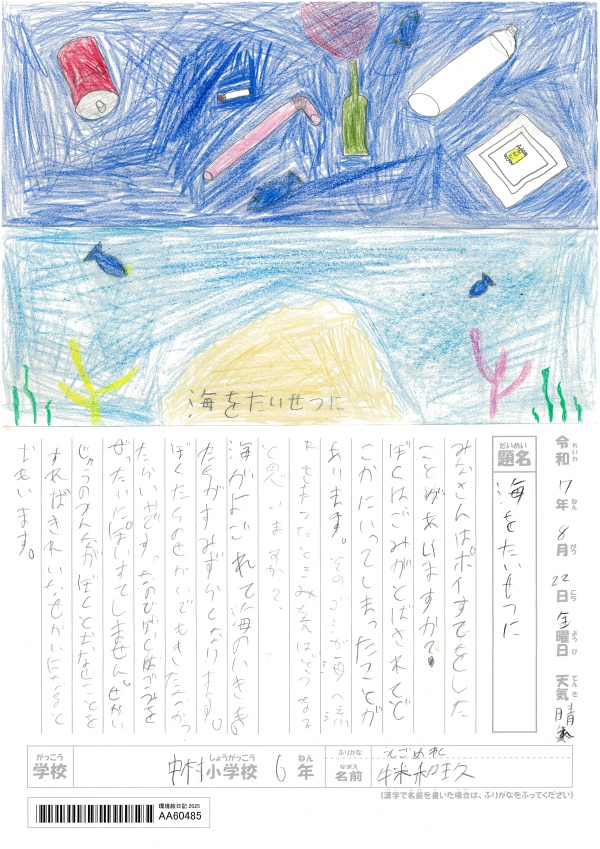 海をたいせつに
令和7年8月22日金曜日 天気晴
れいわ ねん がつ にち ようび てんき
だいめい
題名
海をたいせつに
みなさんはポイすてをした
ことがありますか?
ぼくはごみがとばされてど
こかにいってしまったことが
あります。そのゴミが海へ流
と思いますか?
海がよごれて海のいきもの
たちがすみずらくなります。
ぼくたちのせかいでもきたな
ぜったいにぽいすてしません。せかい
じゅうのみんながぼくとおなじことを
すればきれいなせかいになると
おもいます。
がっこう しょうがっこう ねん
学校 中村小学校 6年
ふりがな
なまえ
名前
(漢字で名前を書いた場合は、ふりがなをふってください)
環境絵日記2025
AA60485